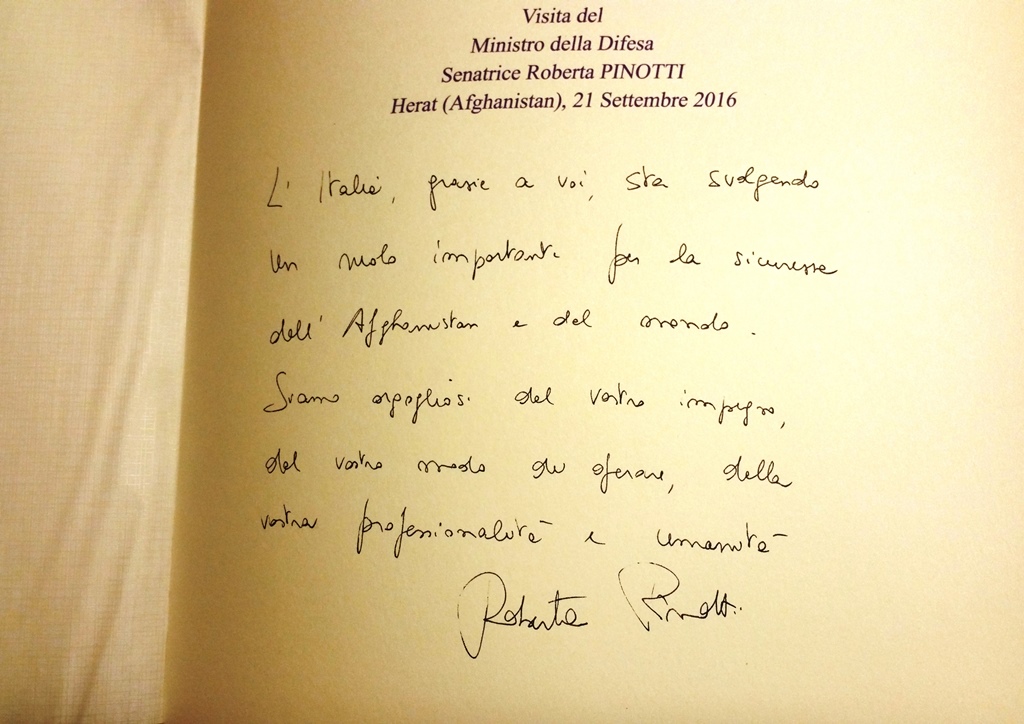 Visita del
Ministro della Difesa
Senatrice Roberta PINOTTI
Herat (Afghanistan), 21 Settembre 2016
L'Italia, grazie a voi, sta svolgendo
un ruolo importante per la sicurezza
dell'Afghanistan e del mondo.
Siamo orgogliosi del vostro impegno,
del vostro modo di operare, della
vostra professionalità e umanità
Roberta Pinotti